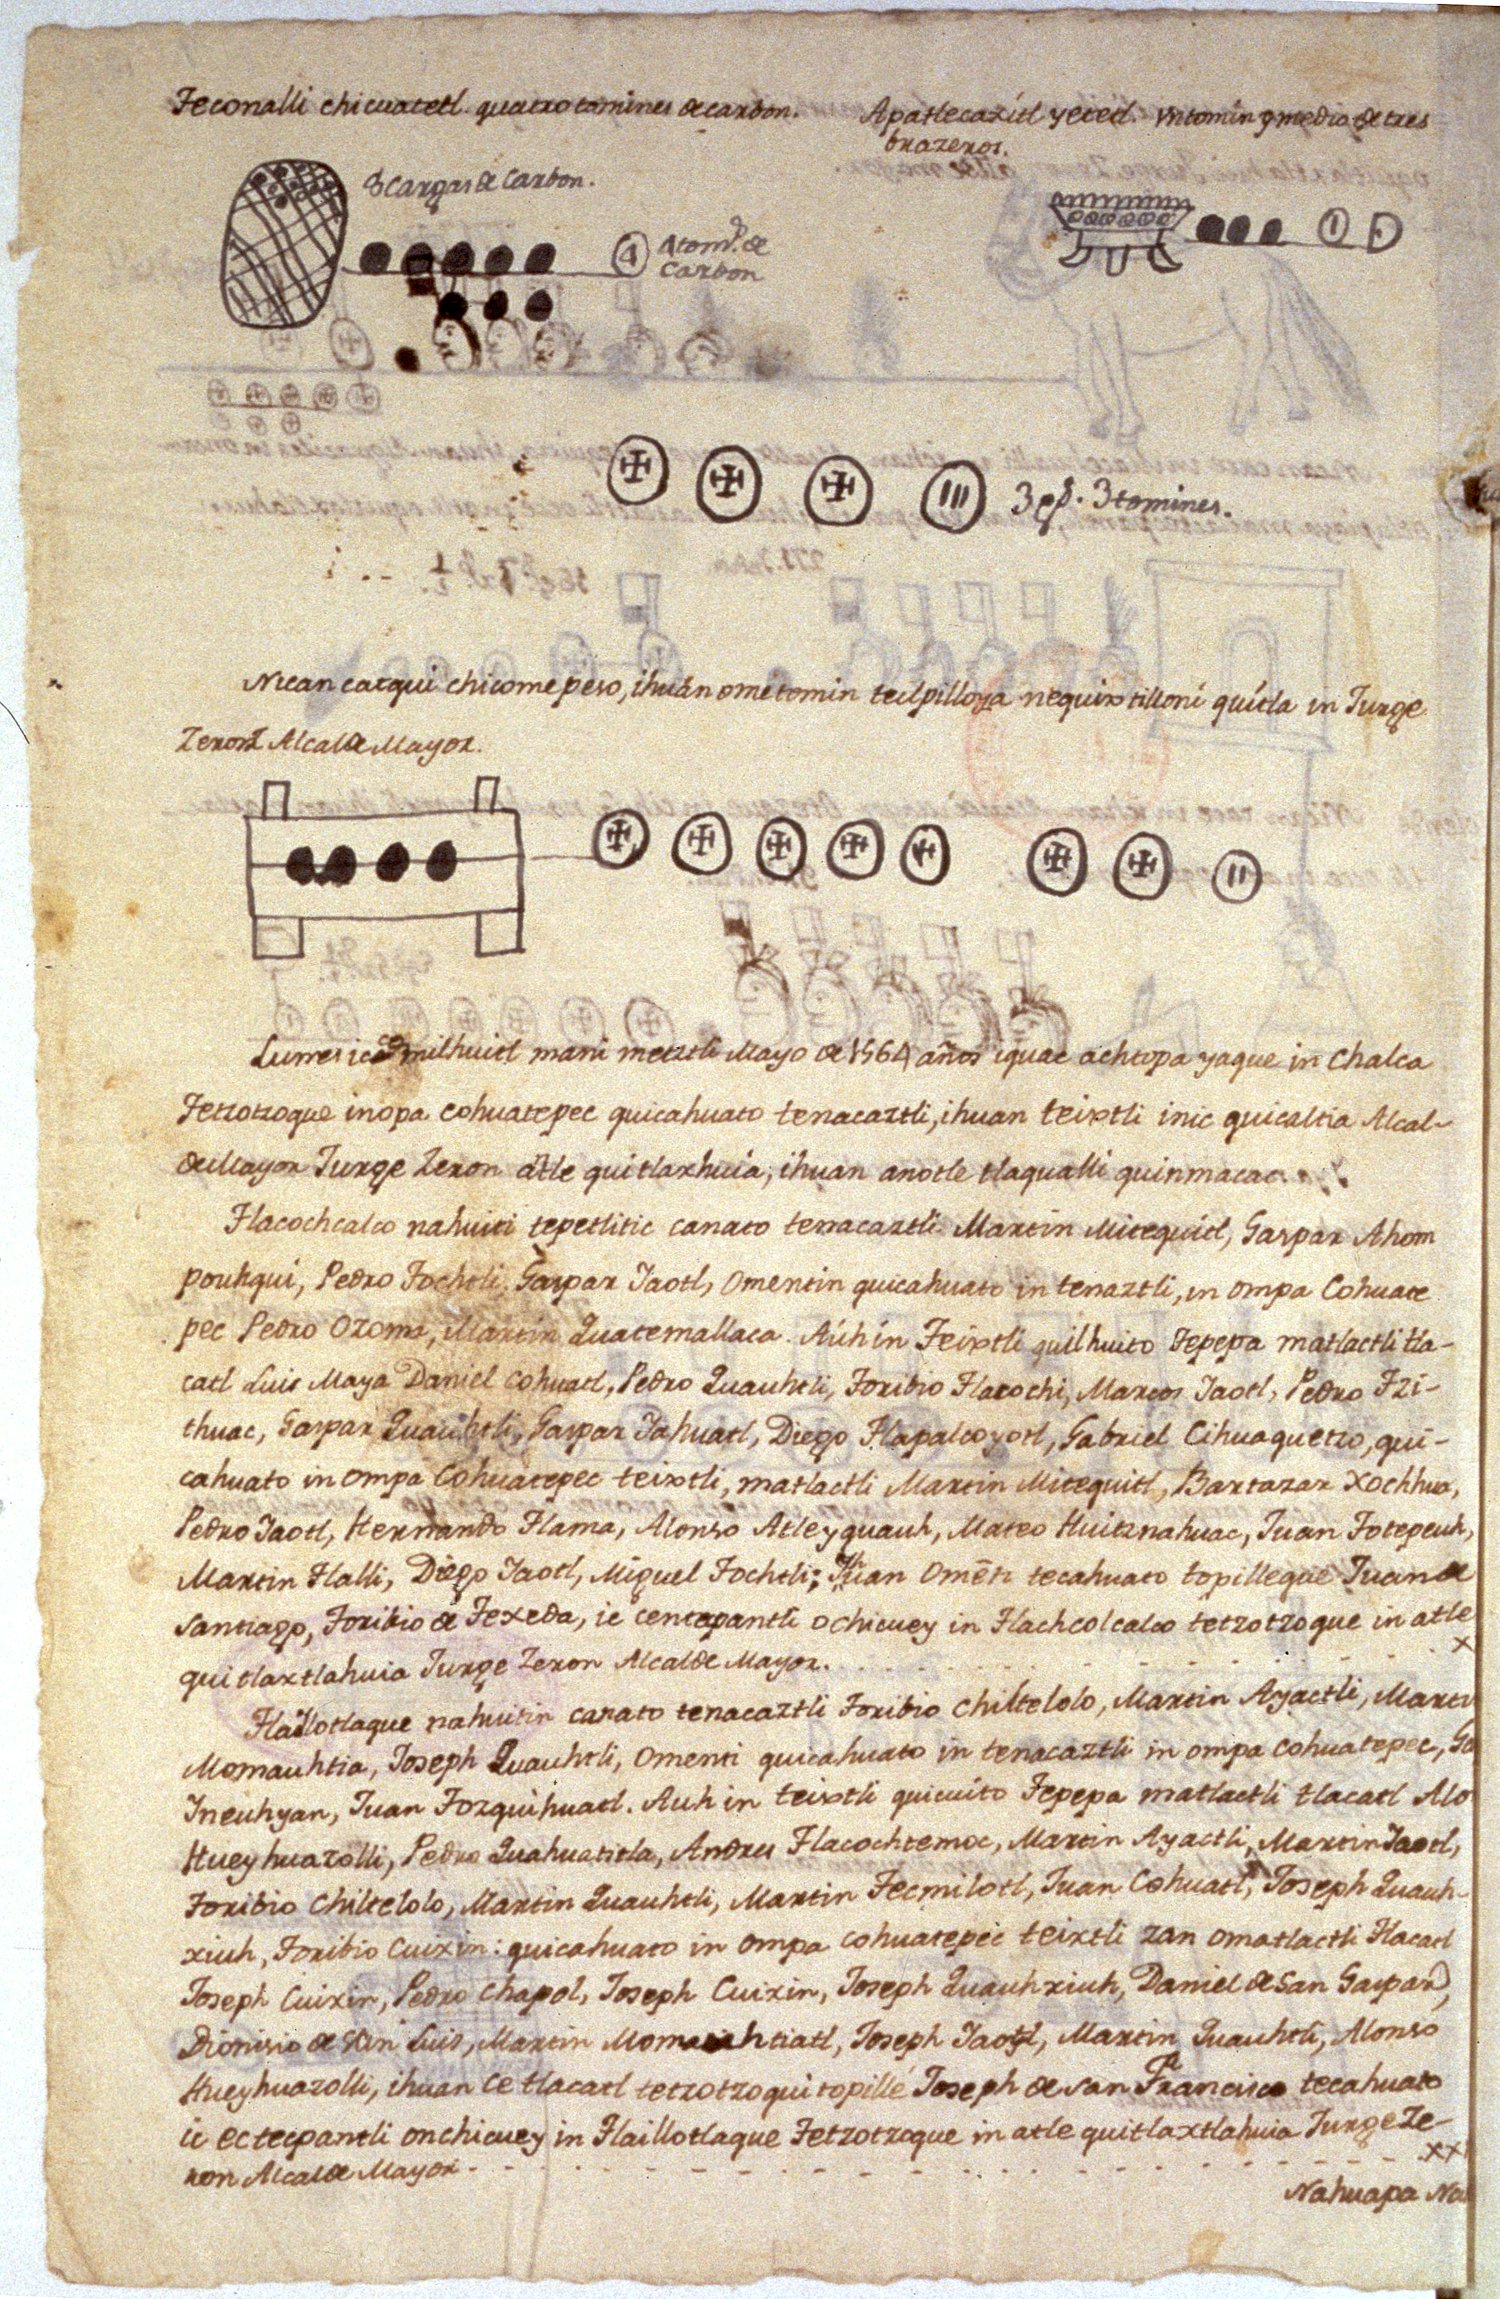 Teconalli chicuatetl. quatro tomines de carbon.
Apatlecaxitl yetetl. un tomin y medio de tres
brazeros.
8 cargas de Carbon.
4
4 tom.s de
Carbon
I
III
3 ps. 3 tomines.
Nican catqui chicome peso, ihuan ome tomin teilpilloya nequixtilloni quitla in Jurge
Zeron Alcalde Mayor.
II
Lunes ic milhuitl mani metztli Mayo de 1564 años iquac achtopa yaque in Chalca
Tetzotzoque in opa Cohuatepec quicahuato tenacaztli, ihuan teixtli inic quicaltia Alcal-
de Mayor Jurge Zeron atle quitlaxhuia, ihuan anotle tlaqualli quinmacac.
Tlacochcalco nahuiti tepetlitic canato tenacaztli Martin Mitequitl, Gaspar Ahom
pouhqui, Pedro Tochtli, Gaspar Yaotl, Omentin quicahuato in tenaztli, in ompa Cohuate
pec Pedro Ozoma, Martin Quatemallaca. Auh in Teixtli quilhuito Tepepa matlactli tla-
catl Luis Maya Daniel Cohuatl, Pedro Quauhtli, Toribio Tlacochi, Marcos Yaotl, Pedro Tzi-
thuac, Gaspar Quauhtli, Gaspar Yahuatl, Diego Tlapalcoyotl, Gabriel Cihuaquetzo, qui-
cahuato in ompa Cohuatepec teixtli, matlactli Martin Mitequitl, Bartazar Xochhua,
Pedro Yaotl, Hernando Tlama, Alonso Atleyquauh, Mateo Huitznahuac, Juan Totepeuh,
Martin Tlalli, Diego Yaotl, Miguel Tochtli; Yhuan Omēti tecahuato topilleque Juan de
Santiago, Toribio de Texeda, ic centepantli ochicuey in Tlachcolcalco tetzotzoque in atle
quitlaxtlahuia Jurge Zeron Alcalde Mayor.
x
Tlaillotlaque nahuitin canato tenacaztli Toribio Chiltelolo, Martin Ayactli, Marti
Momauhtia, Joseph Quauhtli, Omenti quicahuato in tenacaztli in ompa Cohuatepec, Ga
Yneuhyan, Juan Tozquihuatl. Auh in teixtli quicuito Tepepa matlactli tlacatl Alo
Hueyhuazolli, Pedro Quahuatitla, Andres Tlacochtemoc, Martin Ayactli, Martin Yaotl,
Toribio Chiltelolo, Martin Quauhtli, Martin Tecmilotl, Juan Cohuatl, Joseph Quauh-
xiuh, Toribio Cuixin: quicahuato in ompa Cohuatepec teixtli zan omatlactli tlacatl
Joseph Cuixin, Pedro Chapol, Joseph Cuixin, Joseph Quauhxiuh, Daniel de San Gaspar,
Dionisio de San Luis, Martin Momauhtiatl, Joseph Yaotl, Martin Quauhtli, Alonso
Hueyhuazolli, ihuan ce tlacatl tetzotzoqui topille Joseph de San Francisco tecahuato
ic cetecpantli onchicuey in Tlaillotlaque Tetzotzoque in atle quitlaxtlahuia Jurge Ze-
ron Alcalde Mayor
xx
Nahuapa